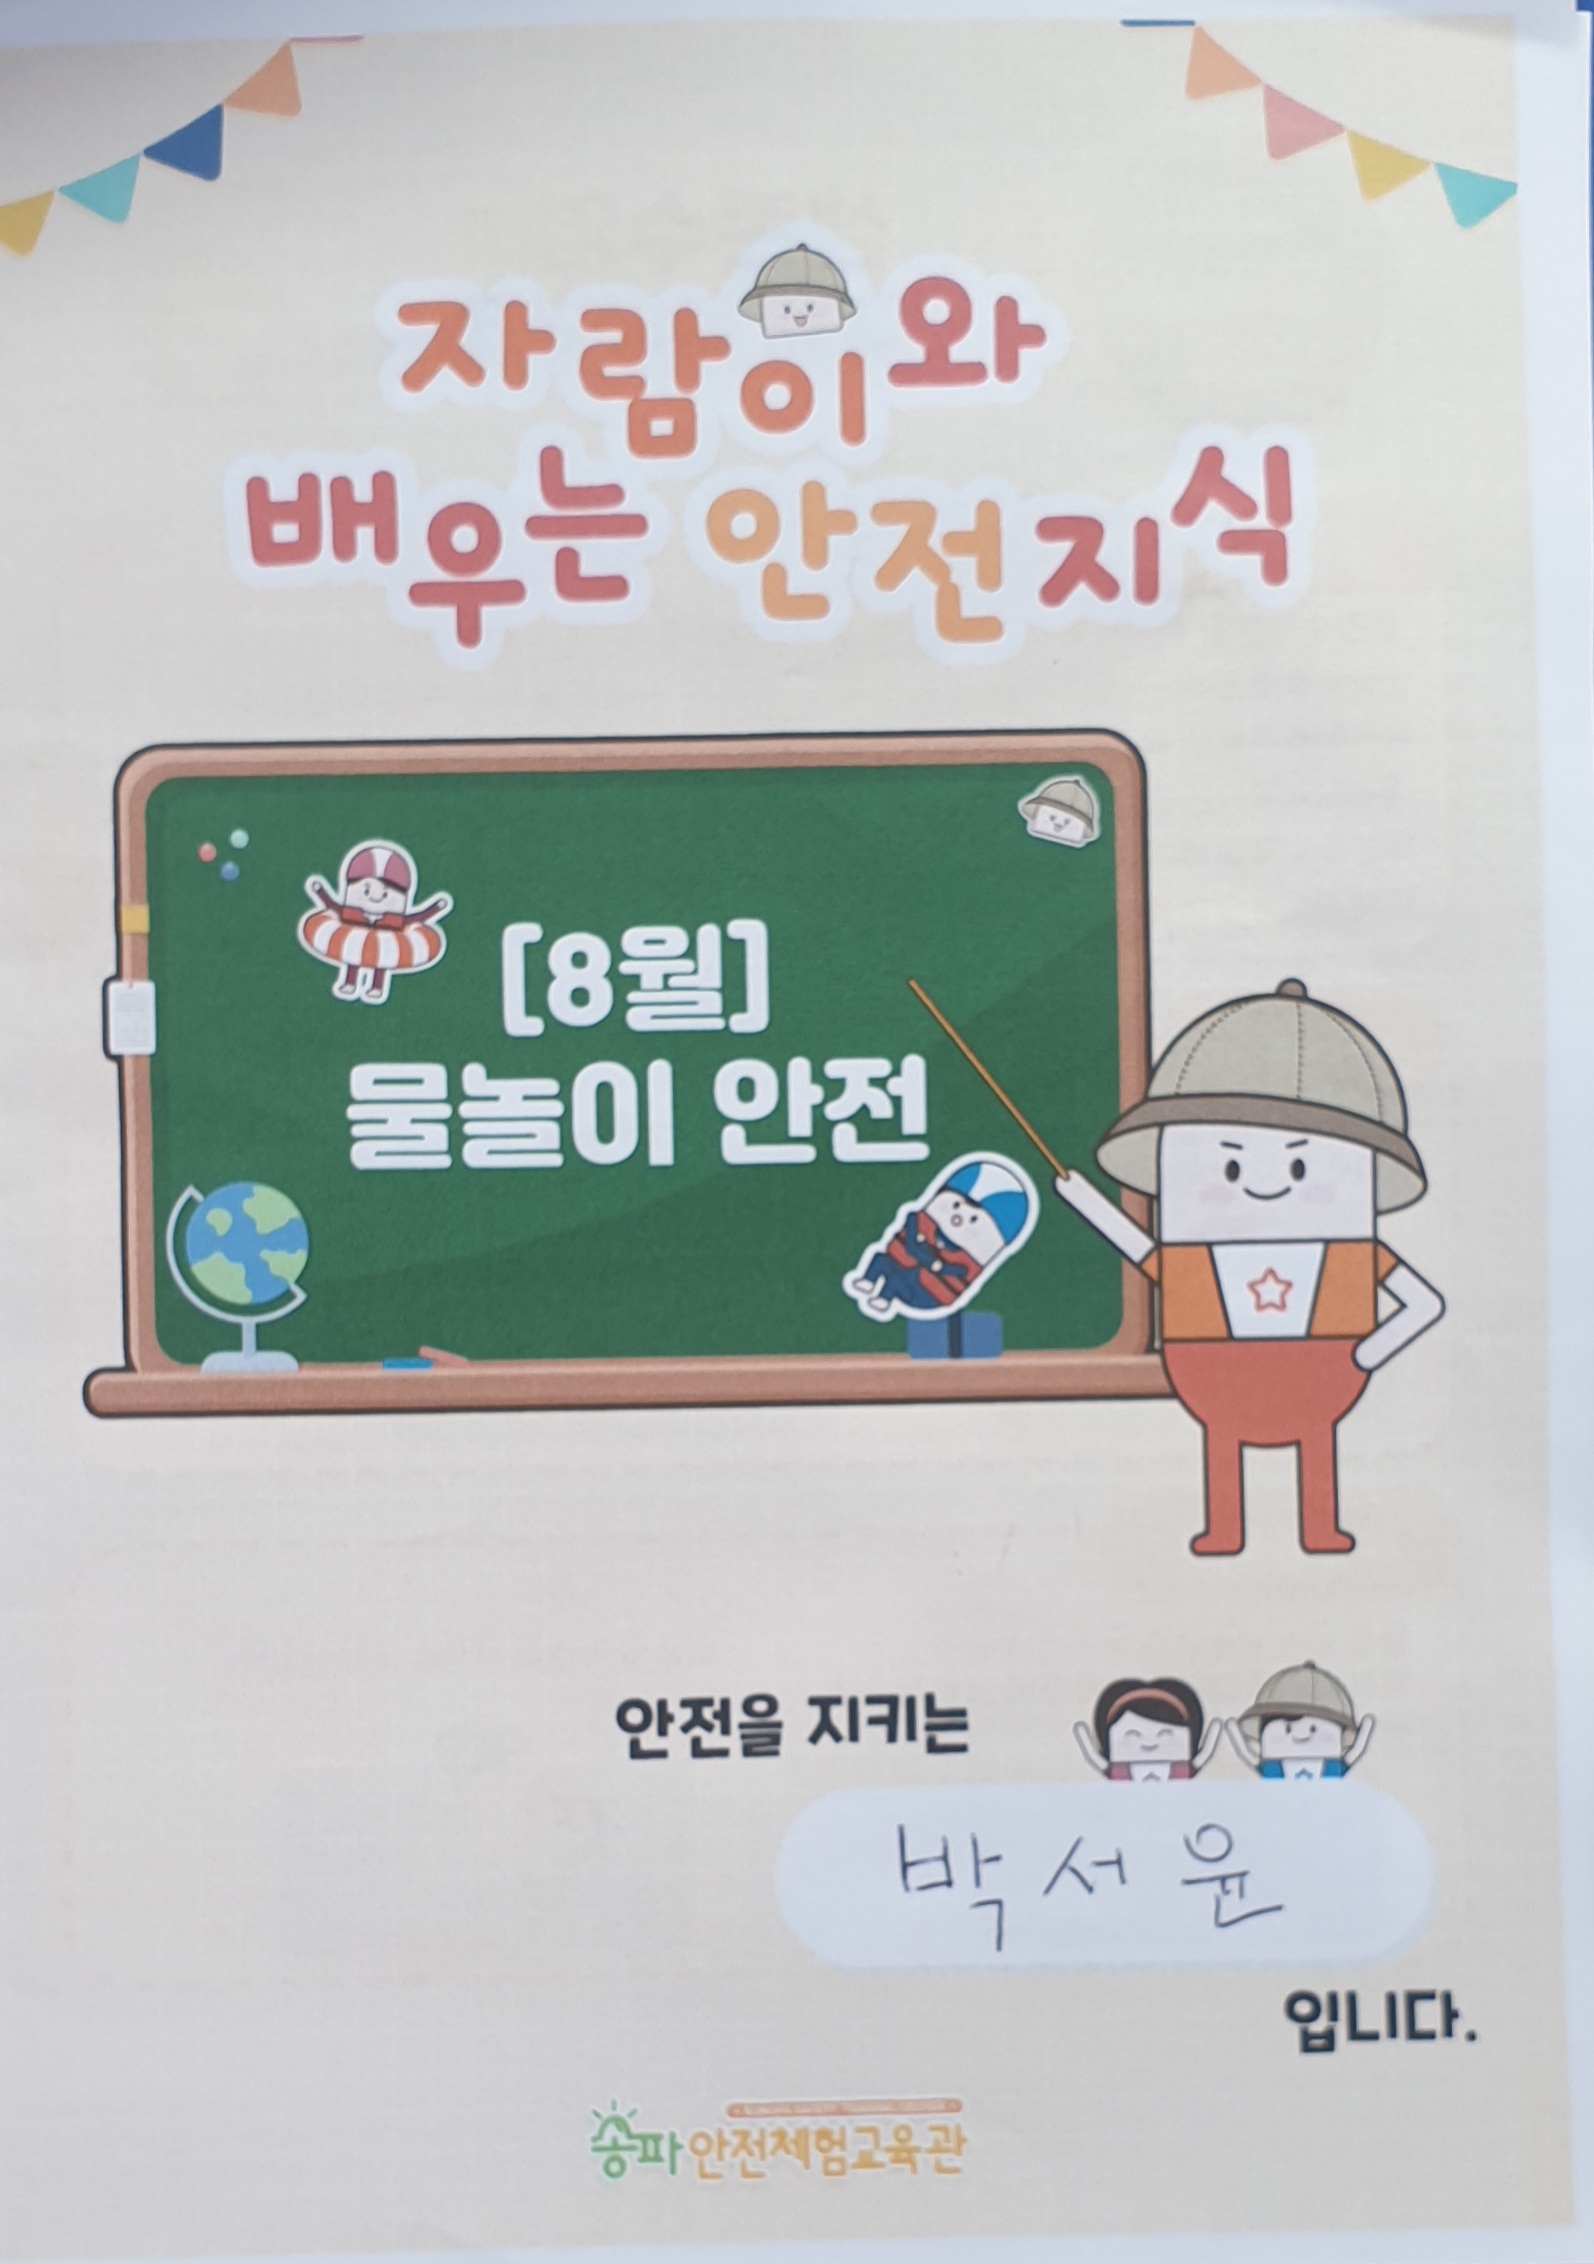 자람이와
배우는 안전지식
[8월]
물놀이 안전
안전을 지키는
박서윤
입니다.
송파안전체험교육관